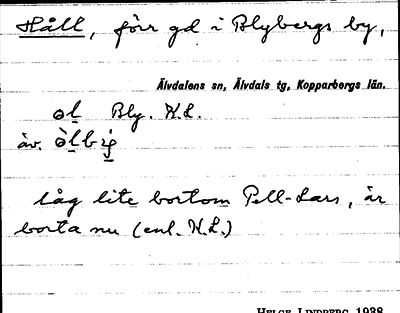 Håll, förr gd i Blybergs by,
Älvdalens sn, Älvdals tg, Kopparbergs län.
ol Bly. N.L.
äv. òlbig
låg lite bortom Pell-Lars, är
borta nu (enl. N.L.)
HELGE LINDBERG 1938